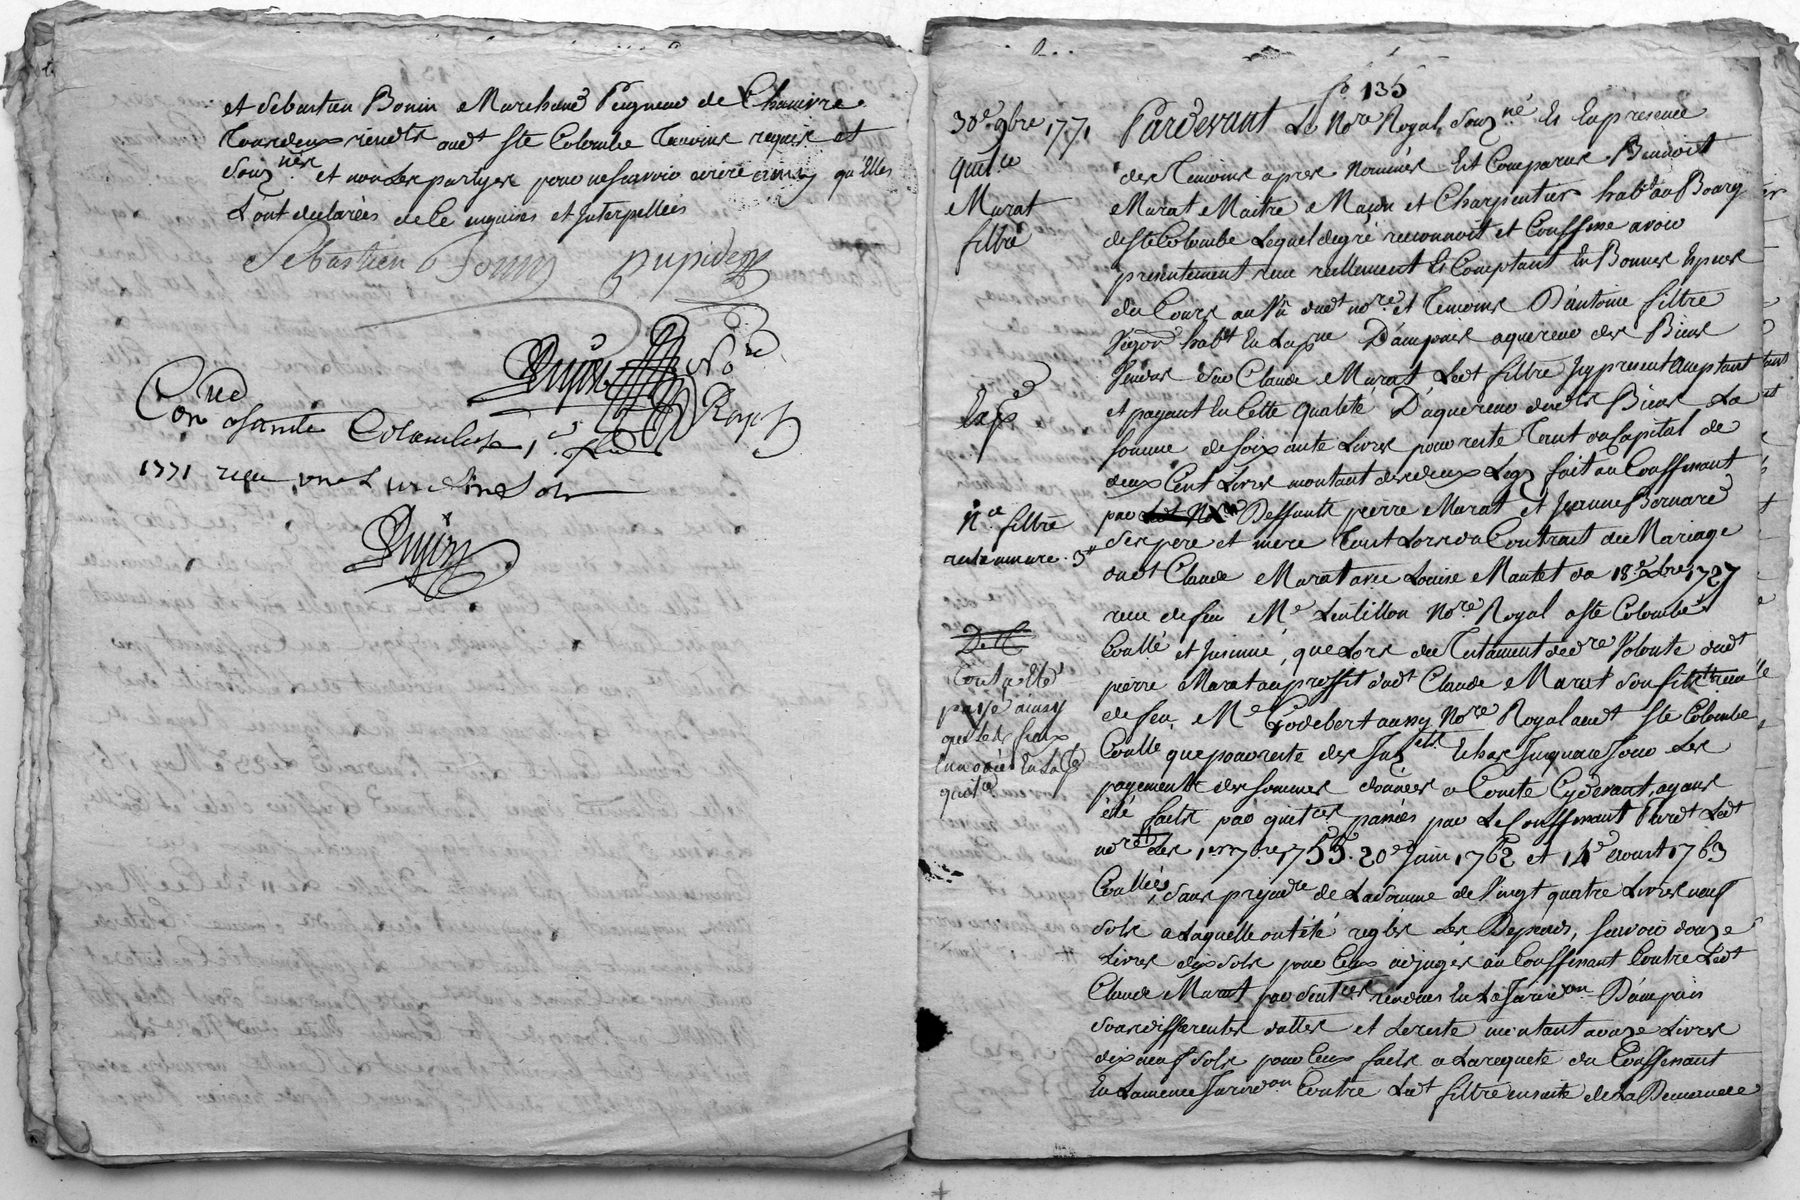 et Sebastien Bonin Marchand Peigneur de Chanvre
Tous deux residts audt Ste Colombe Temoins requis et
Souznés et non les partyes pour ne scavoir ecrire ainsy qu'Elles
L'ont declarées de Ce enquises et Interpellées
Sebastien Bonin Dupuidz
Dujon Nore Royal
Con.lé a Sainte Colombe le
1771 reçu
Dujon
fo 135
30e 9bre 1771
Quitce
Murat
filtre
Expé
Nce filtre
Pardevant Le Nore Royal Souzné Et En presence
des Temoins apres Nommés Est Comparu Benoit
Murat Maitre Maçon et Charpentier habt au Bourg
de Ste Colombe Lequel de gré reconnoit et Confesse avoir
presentement reçu reellement Et Comptant En Bonnes Espèces
du Cours au Vû dudt nore et Temoins D'antoine filtre
Vigon habt En La pse D'ampuis aquereur des Biens
Jeudis du Claude Murat Ledt filtre Jcy present Comptant
et payant En Cette Qualité D'aquereur desdts Biens La
somme de soixante Livres pour reste Tant du Capital de
deux Cent Livres montant des deux Legs fait au Confessant
par Deffunts pierre Murat et Jeanne Bernard
ses pere et mere Tant Lors du Contrat de Mariage
dudt Claude Murat avec Louise Mantet du 18e xbre 1727
reçu de feu Me Lentillon Nore Royal a Ste Colombe
Conllé et Jnsinué, que Lors du Testament de dre Volonté dudt
pierre Murat au proffit dudt Claude Murat son fils reçu
de feu Me Godebert aussy Nore Royal audt Ste Colombe
Conllé que pour reste des Jnts Echus Jusqu'a ce Jour Les
payements des sommes données a Comte Cydevant, ayans
été faits par quitces passées par Le Confessant Pardt Ledt
nore Les 1er 7bre 1755. 20e Juin 1762 et 14e Aoust 1763
Conllées, sans prejudce de La somme de Vingt quatre Livres neuf
sols a Laquelle ont été reglés Les Depends, scavoir douze
Livres dix sols pour Ceux adjugés au Confessant Contre Ledt
Claude Murat par sentces rendues En La Juridon D'ampuis
sous differentes dattes et Le reste montant a onze Livres
dix neuf sols pour Ceux faits a La requete du Confessant
En La meme Juridon Contre Ledt filtre ensuite de La Demande
Cout a Eté
payé ainsy
que Led. frais
Enoncés En La pte
quitce